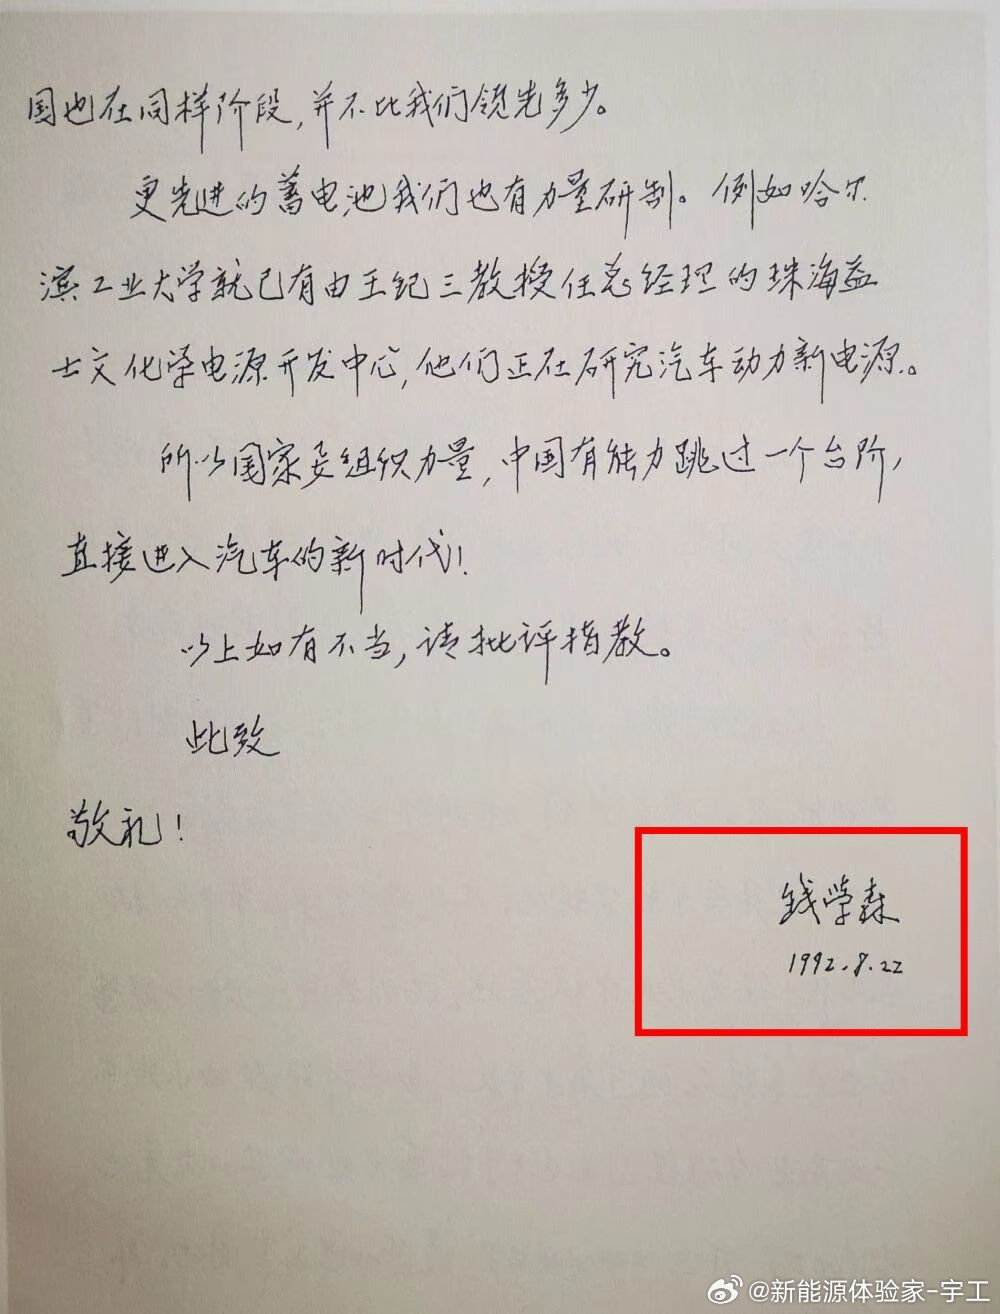 国也在同样阶段，并不比我们领先多少。
更先进的蓄电池我们也有力量研制。例如哈尔
滨工业大学就已有由王纪三教授任总经理的珠海益
士文化学电源开发中心，他们正在研究汽车动力新电源。
所以国家要组织力量，中国有能力跳过一个台阶，
直接进入汽车的新时代！
以上如有不当，请批评指教。
此致
敬礼！
钱学森
1992.8.22
@新能源体验家-宇工